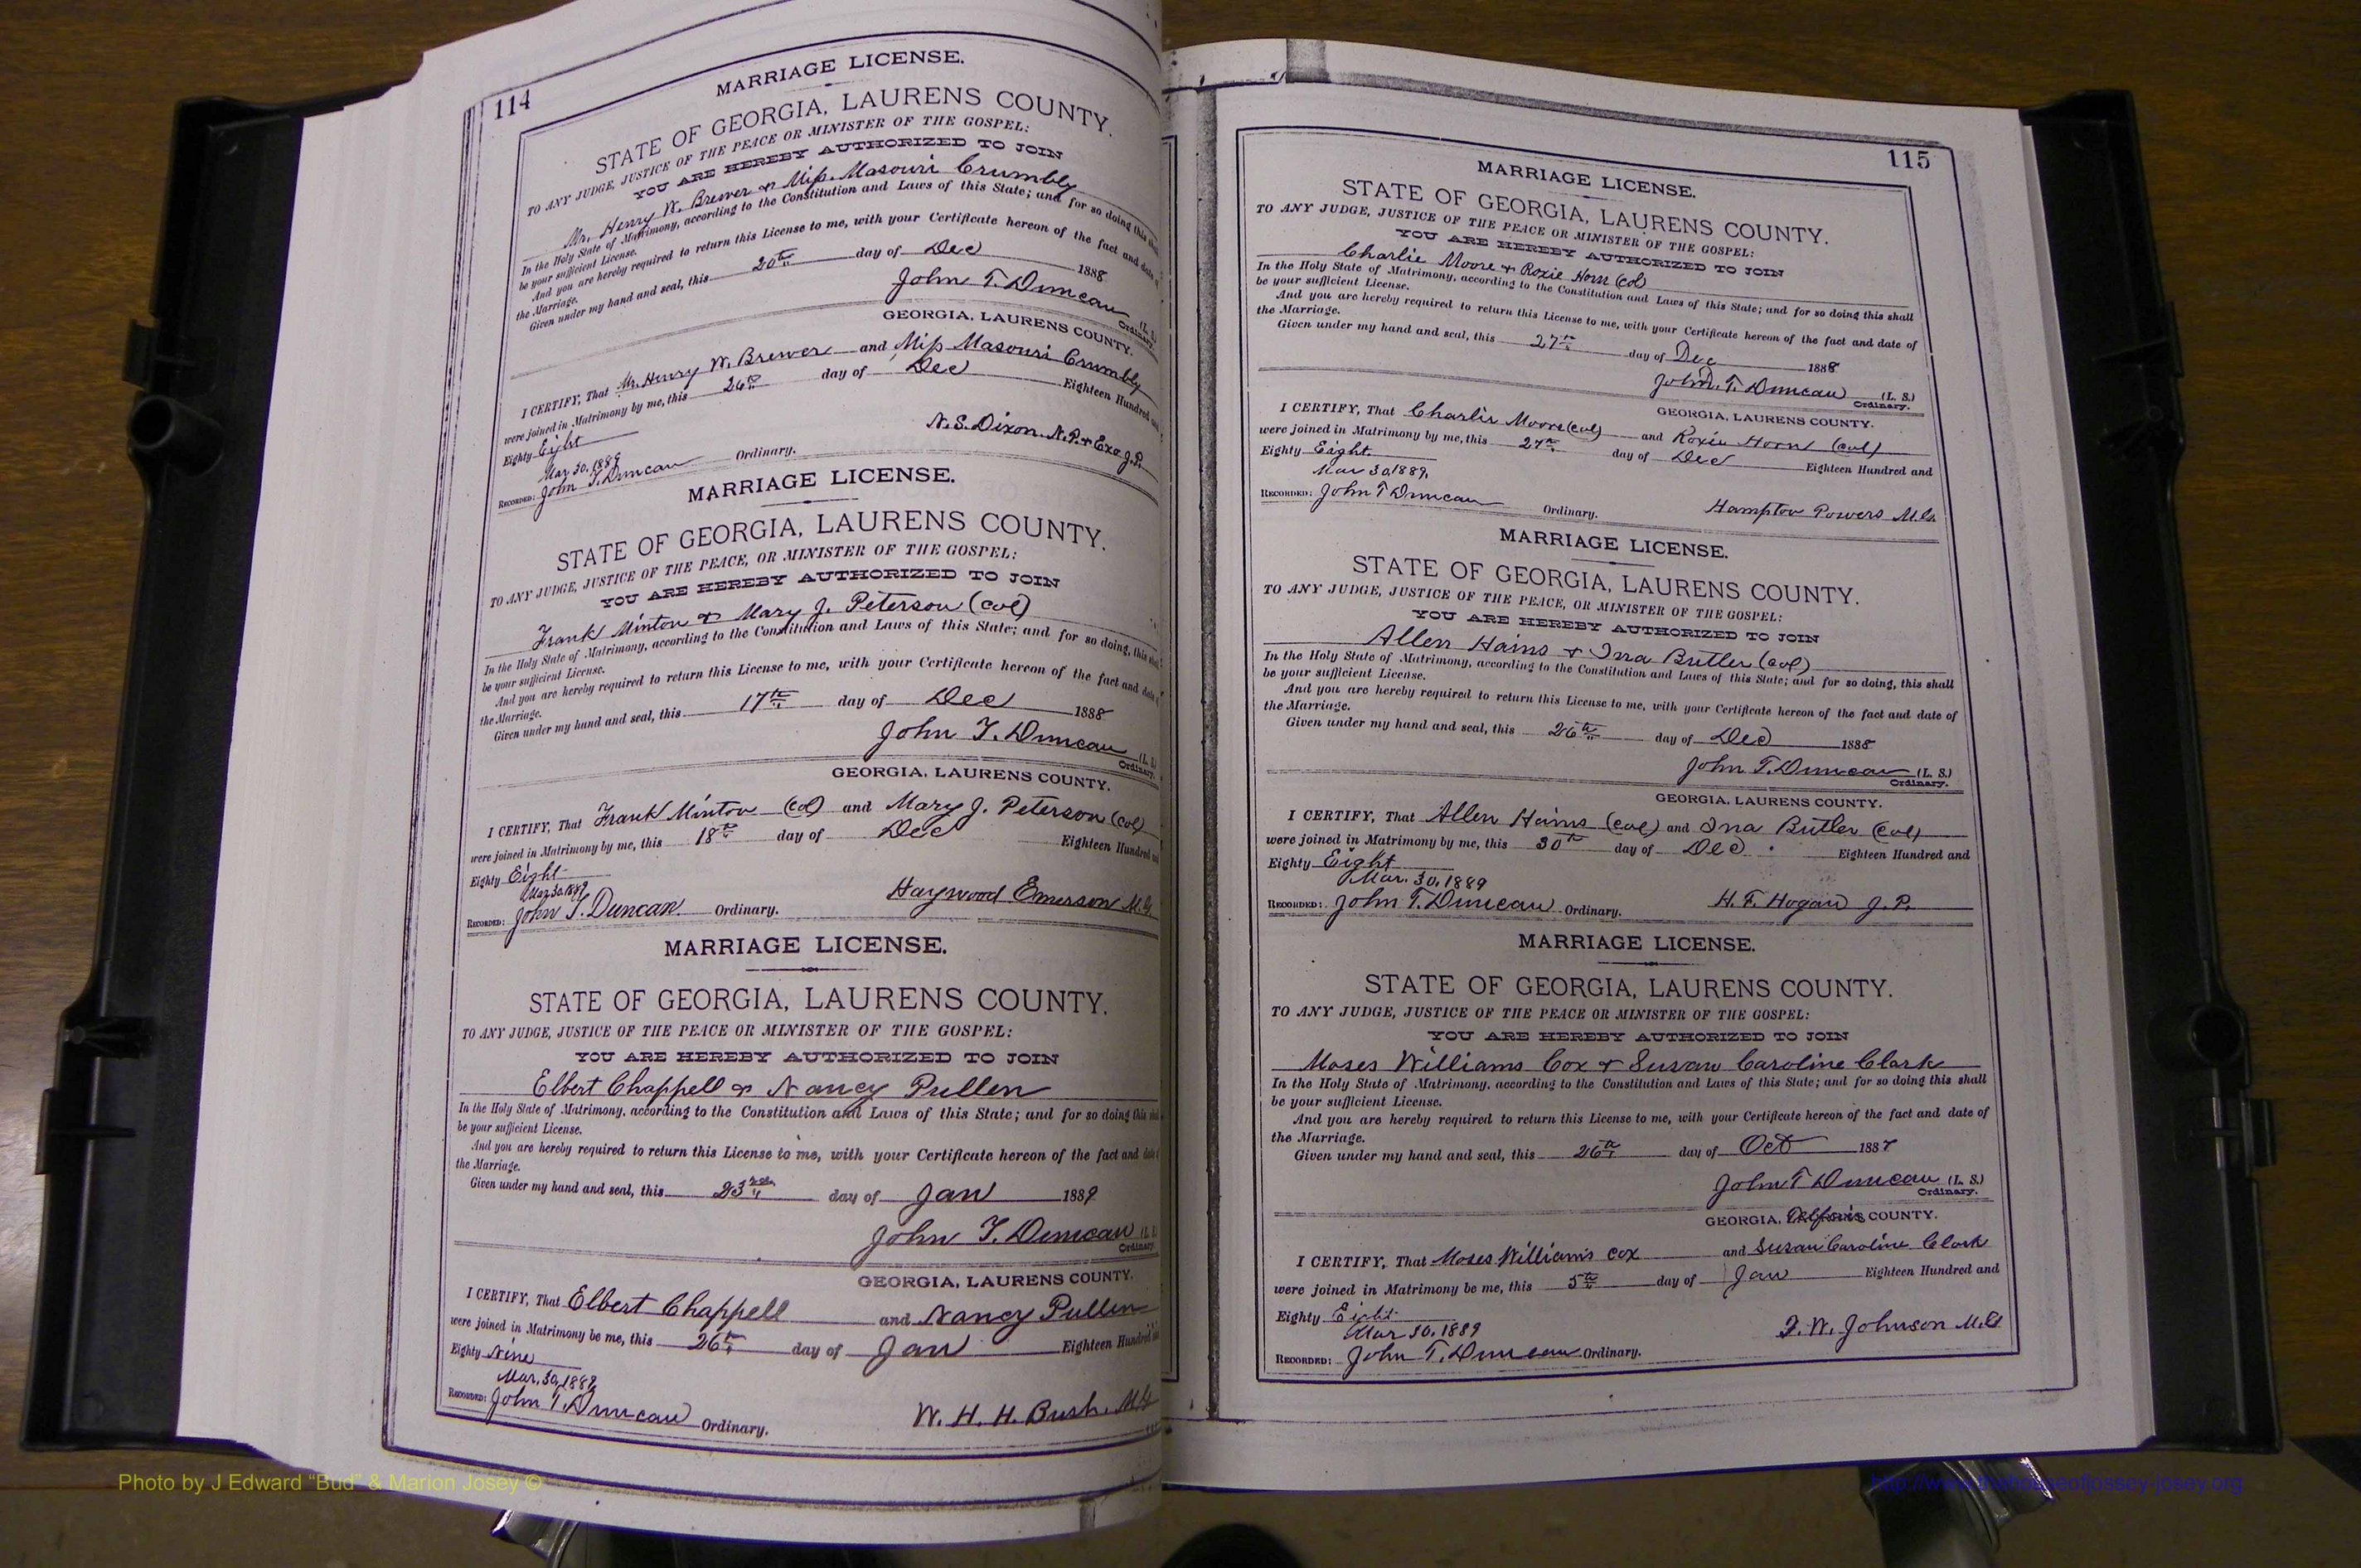 114
MARRIAGE LICENSE.
STATE OF GEORGIA, LAURENS COUNTY.
TO ANY JUDGE, JUSTICE OF THE PEACE OR MINISTER OF THE GOSPEL:
YOU ARE HEREBY AUTHORIZED TO JOIN
Mr. Henry W. Brewer & Miss Masouri Crumbly
In the Holy State of Matrimony, according to the Constitution and Laws of this State; and for so doing this shall
be your sufficient License.
And you are hereby required to return this License to me, with your Certificate hereon of the fact and date
the Marriage.
Given under my hand and seal, this 20th day of Dec 1888
John T. Duncan (L. S.)
Ordinary.
GEORGIA, LAURENS COUNTY.
I CERTIFY, That Mr. Henry W. Brewer and Miss Masouri Crumbly
were joined in Matrimony by me, this 26th day of Dec Eighteen Hundred
Eighty Eight
N. S. Dixon. N.P. & Exo J.P.
Mar. 30. 1889
Recorded: John T. Duncan Ordinary.
MARRIAGE LICENSE.
STATE OF GEORGIA, LAURENS COUNTY.
TO ANY JUDGE, JUSTICE OF THE PEACE, OR MINISTER OF THE GOSPEL:
YOU ARE HEREBY AUTHORIZED TO JOIN
Frank Minton & Mary J. Peterson (col)
In the Holy State of Matrimony, according to the Constitution and Laws of this State; and for so doing, this shall
be your sufficient License.
And you are hereby required to return this License to me, with your Certificate hereon of the fact and date
the Marriage.
Given under my hand and seal, this 17th day of Dec 1888
John T. Duncan (L. S.)
Ordinary.
GEORGIA, LAURENS COUNTY.
I CERTIFY, That Frank Minton (Col) and Mary J. Peterson (Col)
were joined in Matrimony by me, this 18th day of Dec Eighteen Hundred
Eighty Eight
Mar 30. 1889
Haywood Emerson M.G.
Recorded: John T. Duncan. Ordinary.
MARRIAGE LICENSE.
STATE OF GEORGIA, LAURENS COUNTY.
TO ANY JUDGE, JUSTICE OF THE PEACE OR MINISTER OF THE GOSPEL:
YOU ARE HEREBY AUTHORIZED TO JOIN
Elbert Chappell & Nancy Pullen
In the Holy State of Matrimony, according to the Constitution and Laws of this State; and for so doing this shall
be your sufficient License.
And you are hereby required to return this License to me, with your Certificate hereon of the fact and date
the Marriage.
Given under my hand and seal, this 23rd day of Jan 1889
John T. Duncan (L. S.)
Ordinary.
GEORGIA, LAURENS COUNTY.
I CERTIFY, That Elbert Chappell and Nancy Pullen
were joined in Matrimony be me, this 26th day of Jan Eighteen Hundred
Eighty Nine
Mar. 30, 1889
Recorded: John T. Duncan Ordinary.
W. H. H. Bush. M.G.
115
MARRIAGE LICENSE.
STATE OF GEORGIA, LAURENS COUNTY.
TO ANY JUDGE, JUSTICE OF THE PEACE OR MINISTER OF THE GOSPEL:
YOU ARE HEREBY AUTHORIZED TO JOIN
Charlie Moore & Roxie Horn (Col)
In the Holy State of Matrimony, according to the Constitution and Laws of this State; and for so doing this shall
be your sufficient License.
And you are hereby required to return this License to me, with your Certificate hereon of the fact and date of
the Marriage.
Given under my hand and seal, this 27th day of Dec 1888
John. T. Duncan (L. S.)
Ordinary.
GEORGIA, LAURENS COUNTY.
I CERTIFY, That Charlie Moore (col) and Roxie Horn (col)
were joined in Matrimony by me, this 27th day of Dec Eighteen Hundred and
Eighty Eight
Mar 30, 1889,
Recorded: John T Duncan Ordinary.
Hampton Powers M.G.
MARRIAGE LICENSE.
STATE OF GEORGIA, LAURENS COUNTY.
TO ANY JUDGE, JUSTICE OF THE PEACE, OR MINISTER OF THE GOSPEL:
YOU ARE HEREBY AUTHORIZED TO JOIN
Allen Hains & Ina Butler (col)
In the Holy State of Matrimony, according to the Constitution and Laws of this State; and for so doing, this shall
be your sufficient License.
And you are hereby required to return this License to me, with your Certificate hereon of the fact and date of
the Marriage.
Given under my hand and seal, this 26th day of Dec 1888
John T. Duncan (L. S.)
Ordinary.
GEORGIA, LAURENS COUNTY.
I CERTIFY, That Allen Hains (col) and Ina Butler (col)
were joined in Matrimony by me, this 30th day of Dec. Eighteen Hundred and
Eighty Eight
Mar. 30, 1889
Recorded: John T. Duncan Ordinary.
H. F. Hogan J. P.
MARRIAGE LICENSE.
STATE OF GEORGIA, LAURENS COUNTY.
TO ANY JUDGE, JUSTICE OF THE PEACE OR MINISTER OF THE GOSPEL:
YOU ARE HEREBY AUTHORIZED TO JOIN
Moses Williams Cox & Susan Caroline Clark
In the Holy State of Matrimony, according to the Constitution and Laws of this State; and for so doing this shall
be your sufficient License.
And you are hereby required to return this License to me, with your Certificate hereon of the fact and date of
the Marriage.
Given under my hand and seal, this 26th day of Oct 1887
John T Duncan (L. S.)
Ordinary.
GEORGIA, Telfair COUNTY.
I CERTIFY, That Moses Williams Cox and Susan Caroline Clark
were joined in Matrimony be me, this 5th day of Jan Eighteen Hundred and
Eighty Eight
Mar 30, 1889
J. W. Johnson M.G
Recorded: John T. Duncan Ordinary.
Photo by J Edward “Bud” & Marion Josey ©
http://www.thehouseofjossey-josey.org